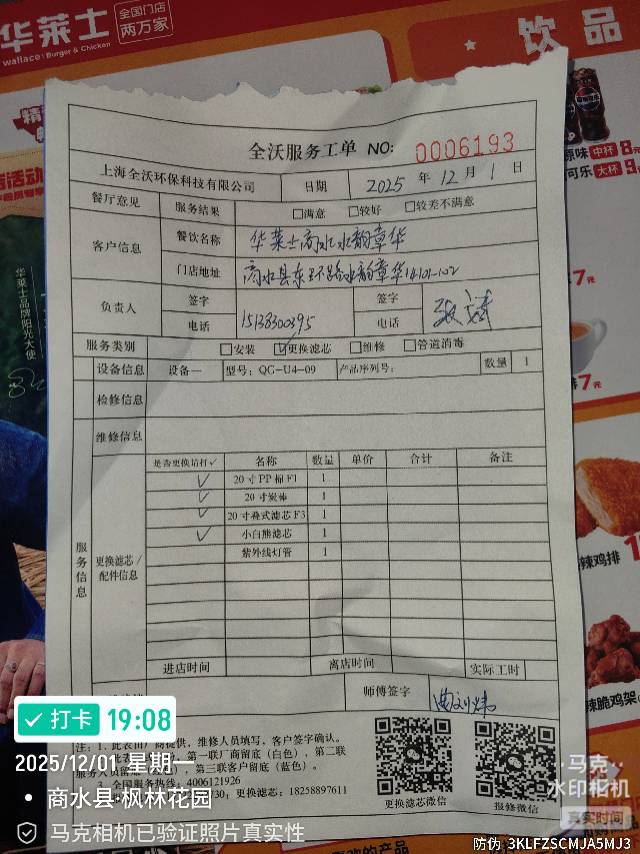 华莱士
wallace | Burger & Chicken
全国门店
两万家
饮品
全沃服务工单 NO: 0006193
上海全沃环保科技有限公司 日期 2025 年 12 月 1 日
餐厅意见 服务结果 □满意 □较好 □较差不满意
客户信息 餐饮名称 华莱士商水水韵章华
门店地址 商水县东环路水韵章华14-101-102
负责人 签字 签字
电话 15138300395 电话
服务类别 □安装 ☑更换滤芯 □维修 □管道消毒
设备信息 设备一 型号: QG-U4-09 产品序列号: 数量 1
检修信息
维修信息
服务信息
更换滤芯/配件信息
是否更换请打✓ 名称 数量 单价 合计 备注
✓ 20寸PP棉F1 1
✓ 20寸炭棒 1
✓ 20寸叠式滤芯F3 1
✓ 小白熊滤芯 1
紫外线灯管 1
进店时间 离店时间 实际工时
师傅签字
注：1.此表由厂商提供，维修人员填写，客户签字确认。
第一联厂商留底（白色），第二联
服务人员留底 ，第三联客户留底（蓝色）。
全国服务热线：4006121926
更换滤芯：18258897611
更换滤芯微信
报修微信
原味 中杯 8元
可乐 大杯 9元
7元
7元
辣鸡排
辣脆鸡架
华莱士品牌阳光大使
打卡 19:08
2025/12/01 星期一
商水县·枫林花园
马克相机已验证照片真实性
马克
水印相机
真实时间
防伪 3KLFZSCMJA5MJ3